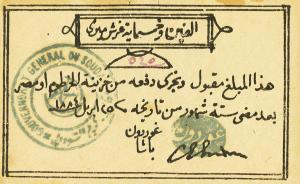 الفين وخمسماية غرش ميرى
هذا المبلغ مقبول وتجرى دفعه من خزينة الخرطوم او مصر
بعد مضى ستة شهور من تاريخه ٢٥ ابريل ١٨٨٤
غوردون
باشا
GOUVERNEMENT GENERAL DU SOUD